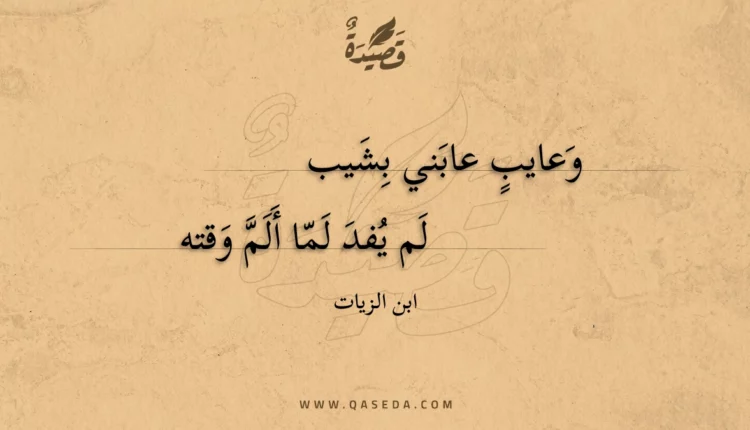 قَصِيْدَةٌ
وَعايبٍ عابَني بِشَيب
لَم يُفدَ لَمّا أَلَمَّ وَقته
ابن الزيات
WWW.QASEDA.COM